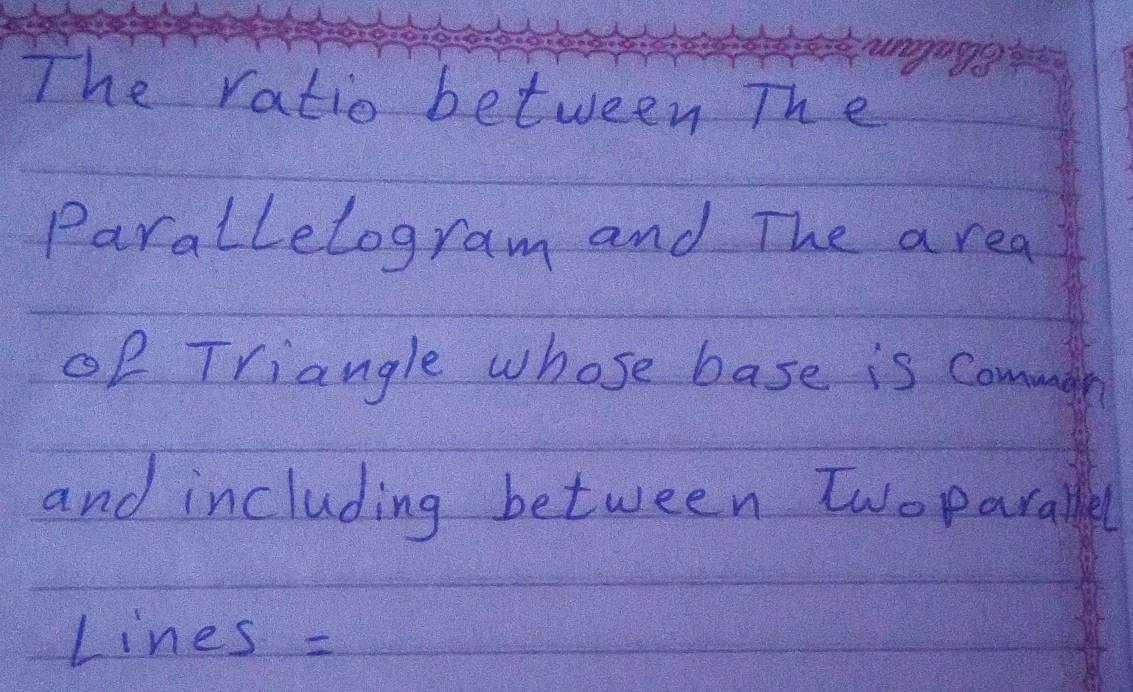 Elsalam
The ratio between The
Parallelogram and The area
of Triangle whose base is Common
and including between Two parallel
Lines =